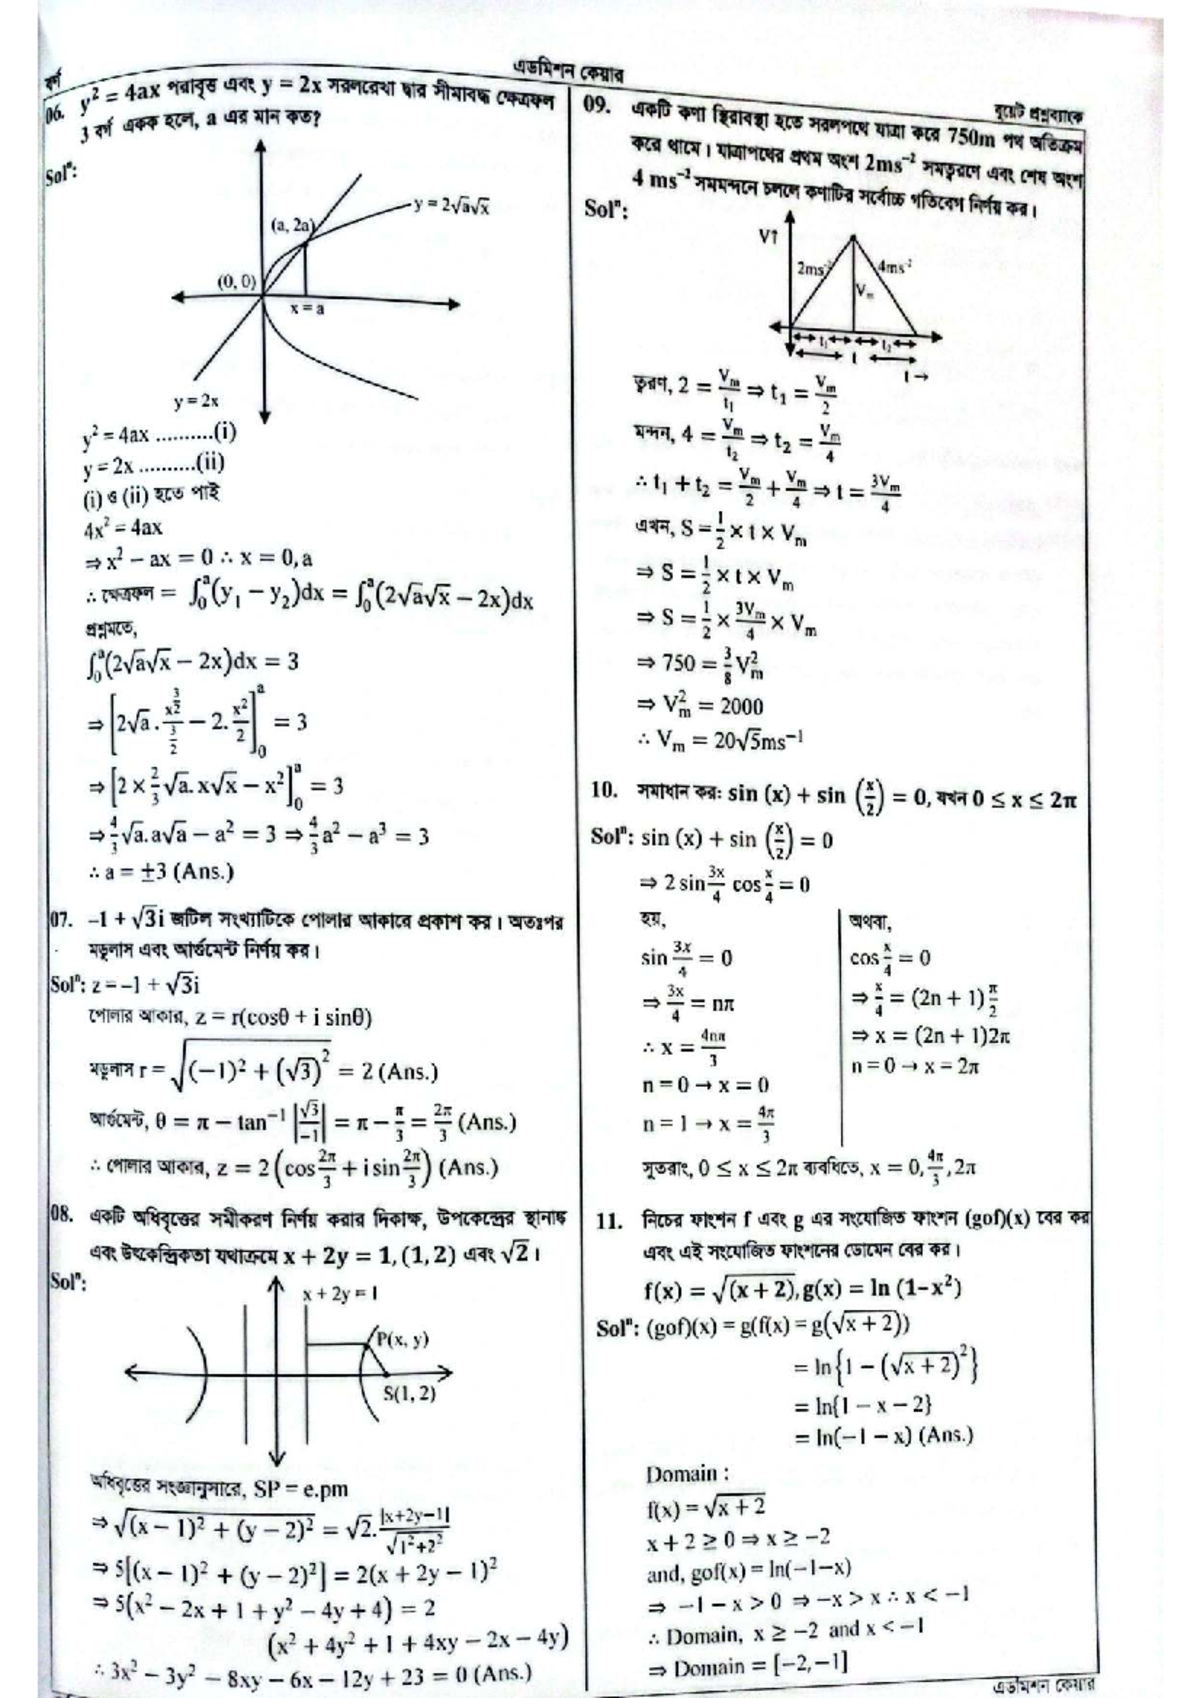 এডমিশন কেয়ার
বুয়েট প্রশ্নব্যাংক
বর্গ
06. y² = 4ax পরাবৃত্ত এবং y = 2x সরলরেখা দ্বার সীমাবদ্ধ ক্ষেত্রফল
3 বর্গ একক হলে, a এর মান কত?
Solⁿ:
y = 2√a√x
(a, 2a)
(0, 0)
x = a
y = 2x
y² = 4ax ..........(i)
y = 2x ..........(ii)
(i) ও (ii) হতে পাই
4x² = 4ax
⇒ x² − ax = 0 ∴ x = 0, a
∴ ক্ষেত্রফল = ∫₀ᵃ(y₁ − y₂)dx = ∫₀ᵃ(2√a√x − 2x)dx
প্রশ্নমতে,
∫₀ᵃ(2√a√x − 2x)dx = 3
⇒ [2√a . x^(3/2)/(3/2) − 2. x²/2]₀ᵃ = 3
⇒ [2 × 2/3 √a. x√x − x²]₀ᵃ = 3
⇒ 4/3 √a. a√a − a² = 3 ⇒ 4/3 a² − a³ = 3
∴ a = ±3 (Ans.)
07. −1 + √3i জটিল সংখ্যাটিকে পোলার আকারে প্রকাশ কর। অতঃপর
মডুলাস এবং আর্গুমেন্ট নির্ণয় কর।
Solⁿ: z = −1 + √3i
পোলার আকার, z = r(cosθ + i sinθ)
মডুলাস r = √((−1)² + (√3)²) = 2 (Ans.)
আর্গুমেন্ট, θ = π − tan⁻¹ |√3/−1| = π − π/3 = 2π/3 (Ans.)
∴ পোলার আকার, z = 2 (cos 2π/3 + i sin 2π/3) (Ans.)
08. একটি অধিবৃত্তের সমীকরণ নির্ণয় করার দিকাক্ষ, উপকেন্দ্রের স্থানাঙ্ক
এবং উৎকেন্দ্রিকতা যথাক্রমে x + 2y = 1, (1, 2) এবং √2 ।
Solⁿ:
x + 2y = 1
P(x, y)
S(1, 2)
অধিবৃত্তের সংজ্ঞানুসারে, SP = e.pm
⇒ √((x − 1)² + (y − 2)²) = √2. |x+2y−1|/√(1²+2²)
⇒ 5[(x − 1)² + (y − 2)²] = 2(x + 2y − 1)²
⇒ 5(x² − 2x + 1 + y² − 4y + 4) = 2
(x² + 4y² + 1 + 4xy − 2x − 4y)
∴ 3x² − 3y² − 8xy − 6x − 12y + 23 = 0 (Ans.)
09. একটি কণা স্থিরাবস্থা হতে সরলপথে যাত্রা করে 750m পথ অতিক্রম
করে থামে। যাত্রাপথের প্রথম অংশ 2ms⁻² সমত্বরণে এবং শেষ অংশ
4 ms⁻² সমমন্দনে চললে কণাটির সর্বোচ্চ গতিবেগ নির্ণয় কর।
Solⁿ:
V↑
2ms⁻²
4ms⁻²
Vₘ
t₁
t₂
t
t →
ত্বরণ, 2 = Vₘ/t₁ ⇒ t₁ = Vₘ/2
মন্দন, 4 = Vₘ/t₂ ⇒ t₂ = Vₘ/4
∴ t₁ + t₂ = Vₘ/2 + Vₘ/4 ⇒ t = 3Vₘ/4
এখন, S = 1/2 × t × Vₘ
⇒ S = 1/2 × t × Vₘ
⇒ S = 1/2 × 3Vₘ/4 × Vₘ
⇒ 750 = 3/8 Vₘ²
⇒ Vₘ² = 2000
∴ Vₘ = 20√5ms⁻¹
10. সমাধান কর: sin (x) + sin (x/2) = 0, যখন 0 ≤ x ≤ 2π
Solⁿ: sin (x) + sin (x/2) = 0
⇒ 2 sin 3x/4 cos x/4 = 0
হয়,
sin 3x/4 = 0
⇒ 3x/4 = nπ
∴ x = 4nπ/3
n = 0 → x = 0
n = 1 → x = 4π/3
অথবা,
cos x/4 = 0
⇒ x/4 = (2n + 1) π/2
⇒ x = (2n + 1)2π
n = 0 → x = 2π
সুতরাং, 0 ≤ x ≤ 2π ব্যবধিতে, x = 0, 4π/3, 2π
11. নিচের ফাংশন f এবং g এর সংযোজিত ফাংশন (gof)(x) বের কর
এবং এই সংযোজিত ফাংশনের ডোমেন বের কর।
f(x) = √(x + 2), g(x) = ln (1−x²)
Solⁿ: (gof)(x) = g(f(x) = g(√x + 2))
= ln{1 − (√x + 2)²}
= ln{1 − x − 2}
= ln(−1 − x) (Ans.)
Domain :
f(x) = √x + 2
x + 2 ≥ 0 ⇒ x ≥ −2
and, gof(x) = ln(−1−x)
⇒ −1 − x > 0 ⇒ −x > x ∴ x < −1
∴ Domain, x ≥ −2 and x < −1
⇒ Domain = [−2, −1]
এডমিশন কেয়ার